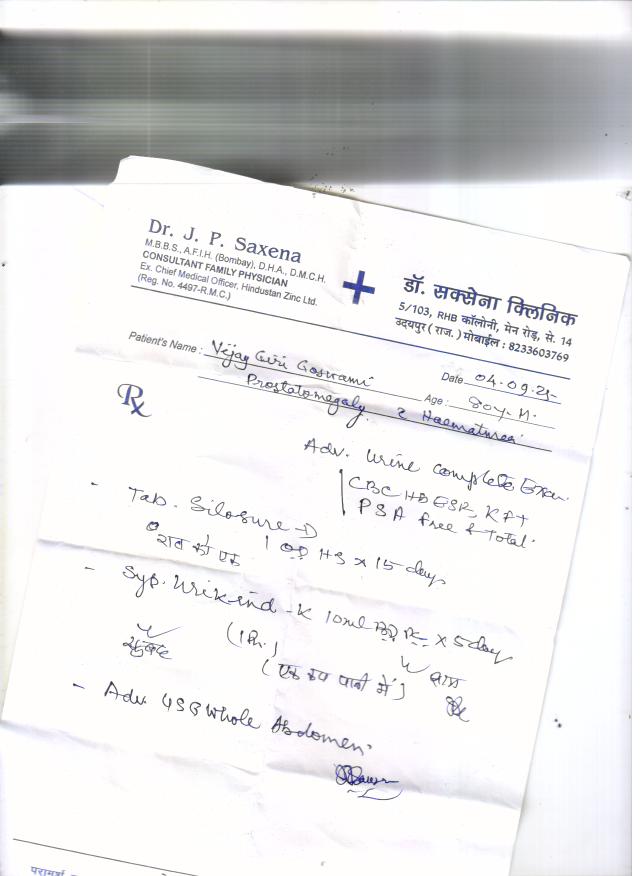 Dr. J. P. Saxena
M.B.B.S., A.F.I.H. (Bombay), D.H.A., D.M.C.H.
CONSULTANT FAMILY PHYSICIAN
Ex. Chief Medical Officer, Hindustan Zinc Ltd.
(Reg. No. 4497-R.M.C.)
डॉ. सक्सेना क्लिनिक
5/103, RHB कॉलोनी, मेन रोड़, से. 14
उदयपुर ( राज. ) मोबाईल : 8233603769
Patient's Name : Vijay Giri Goswami
Date 04.09.25
Age : 80y. M.
Prostatomegaly. c Haematuria
Rx
Adv. Urine Complete Exam.
CBC HB ESR, KFT
PSA free & Total.
- Tab. Silosure-D
1 OD HS x 15 days
रात को एक
- Syp. Urikind-K 10ml BD x 5 day
(1 Ph.)
सुबह शाम
(एक कप पानी में)
- Adv. USG Whole Abdomen.
परामर्श